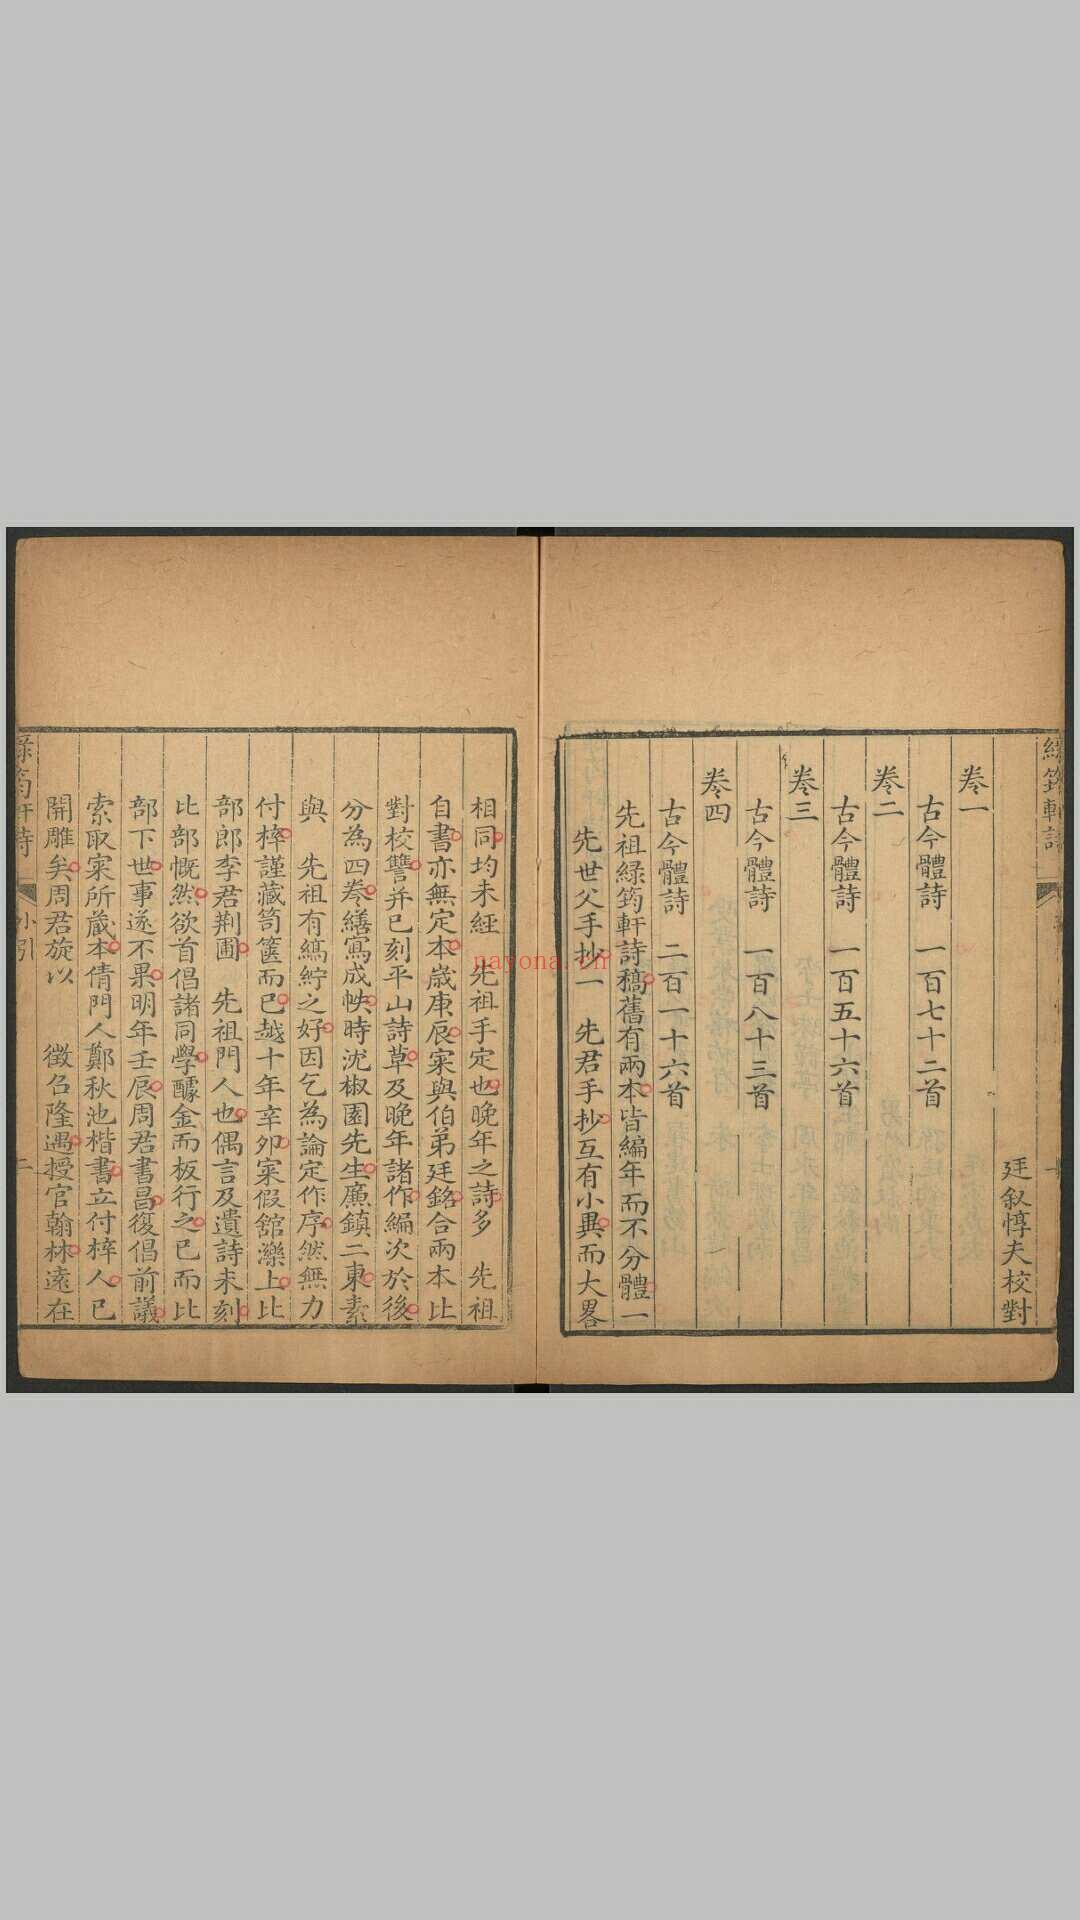 廷敘惇夫校對
卷一
古今體詩 一百七十二首
卷二
古今體詩 一百五十六首
卷三
古今體詩 一百八十三首
卷四
古今體詩 二百一十六首
先祖綠筠軒詩稿舊有兩本皆編年而不分體一
先世父手抄一 先君手抄互有小異而大畧
相同均未經 先祖手定也晚年之詩多 先祖
自書亦無定本歲庚辰寀與伯弟廷銘合兩本比
對校讐并已刻平山詩草及晚年諸作編次於後
分為四卷繕寫成帙時沈椒園先生廉鎮二東素
與 先祖有縞紵之好因乞為論定作序然無力
付梓謹藏笥篋而已越十年辛夘寀假舘濼上比
部郎李君荆圃 先祖門人也偶言及遺詩未刻
比部慨然欲首倡諸同學醵金而板行之已而比
部下世事遂不果明年壬辰周君書昌復倡前議
索取寀所蔵本倩門人鄭秋池楷書立付梓人已
開雕矣周君旋以 徵召隆遇授官翰林遠在
綠筠軒詩
小引
二
綠筠軒詩
nayona.cn